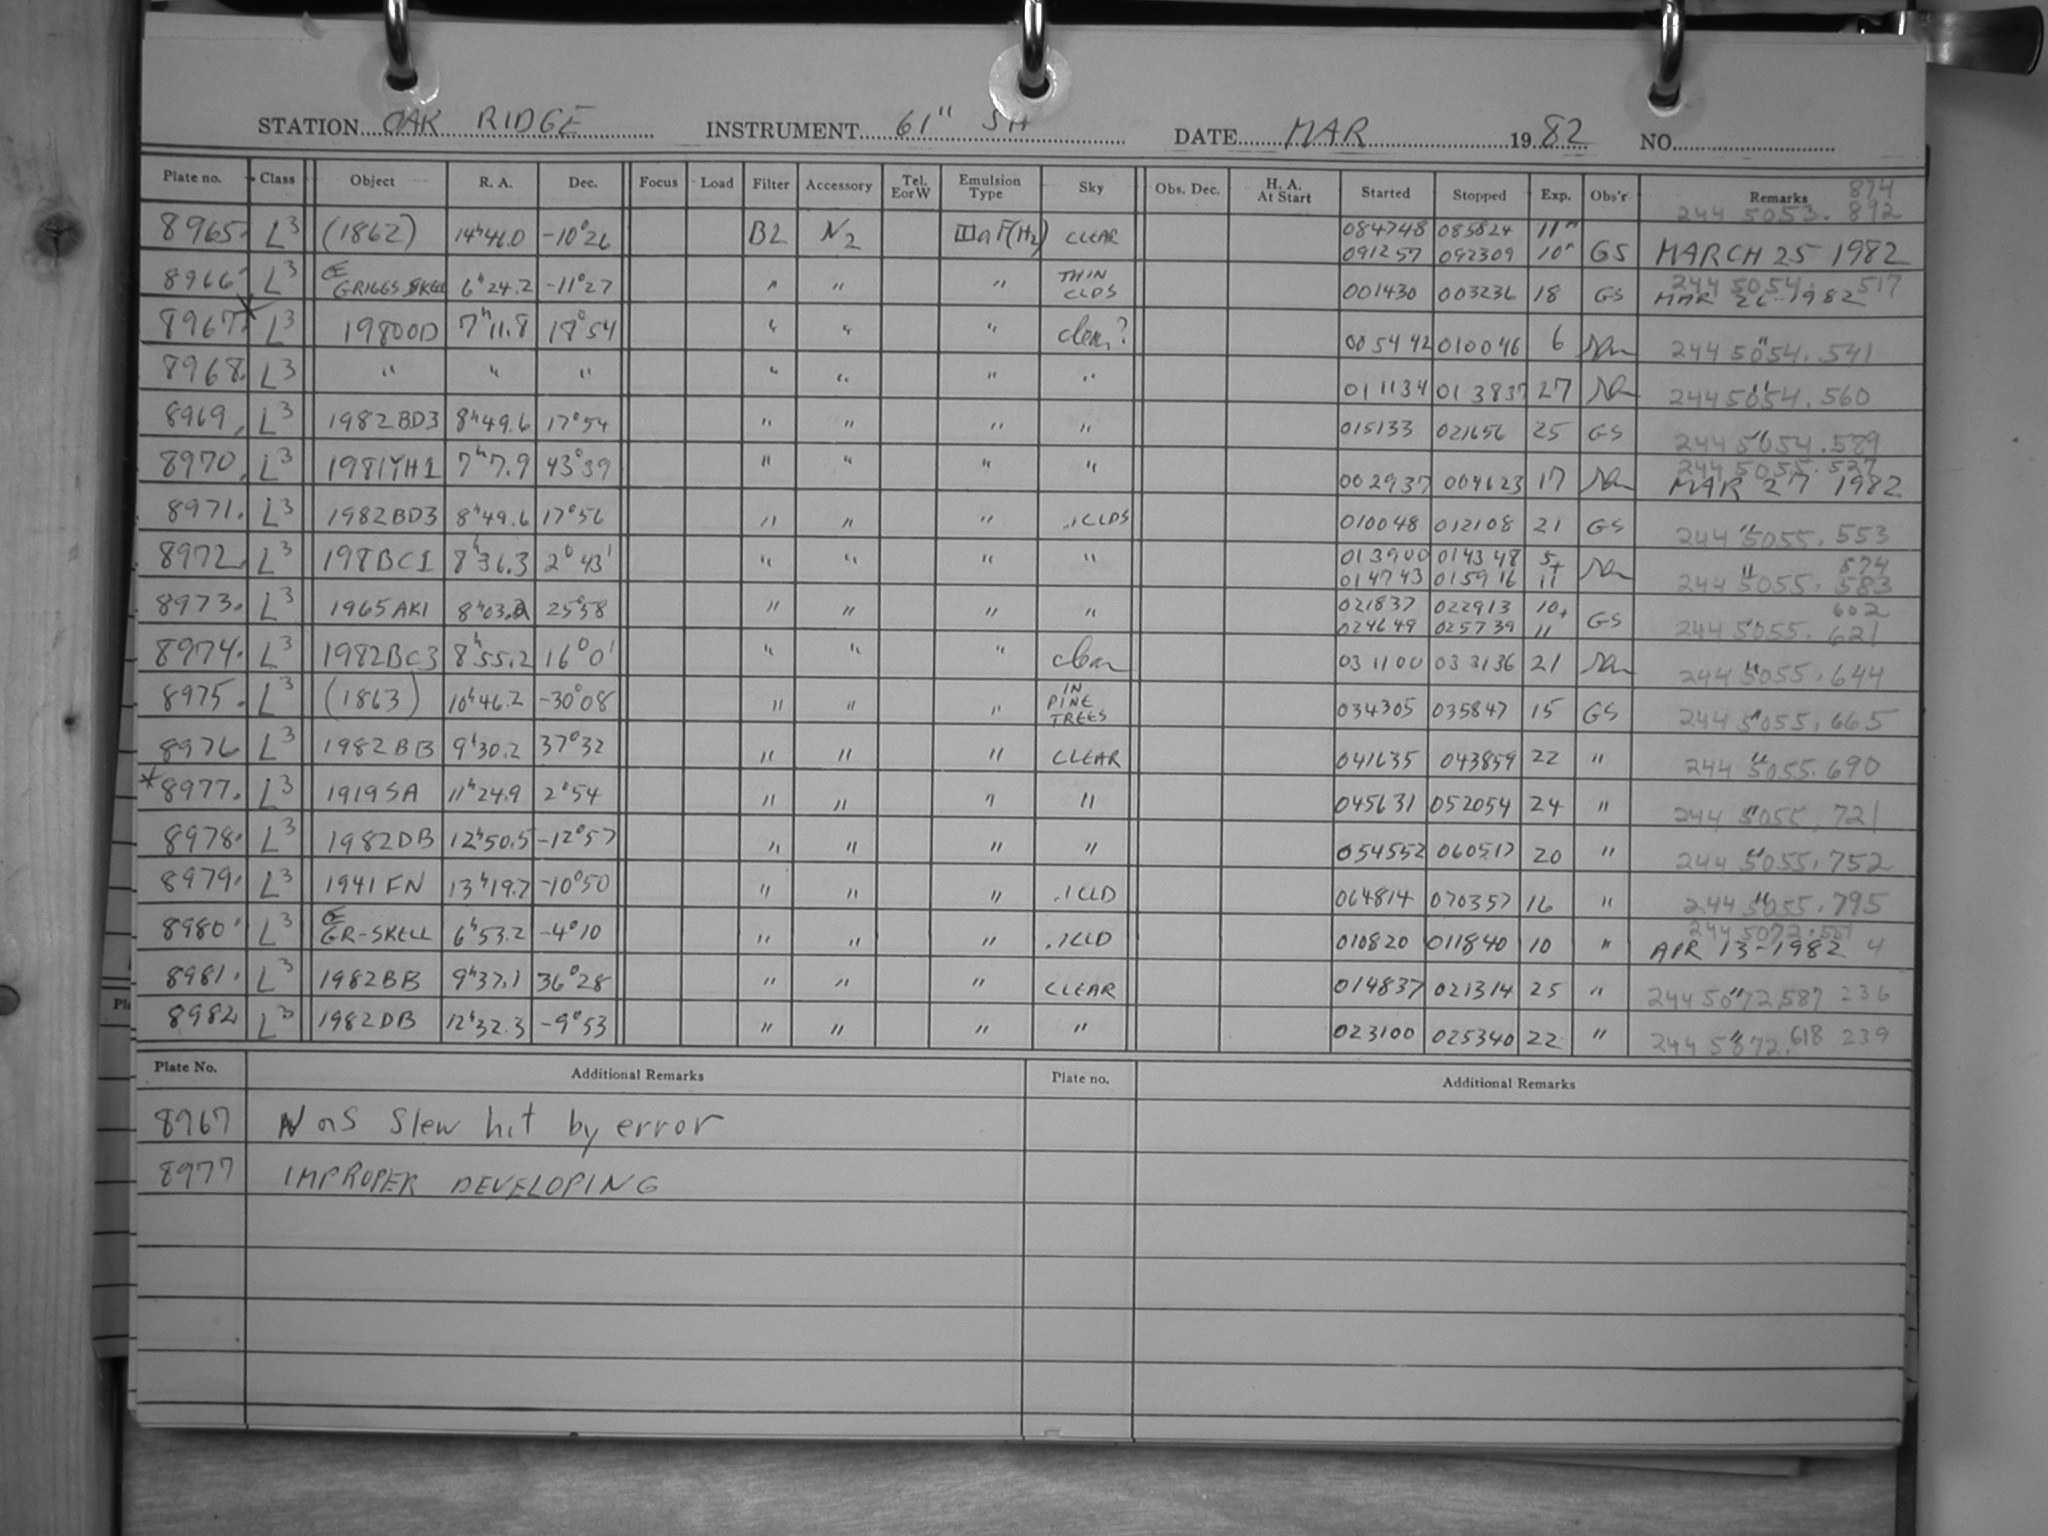 STATION OAK RIDGE INSTRUMENT 61" DATE MAR 1982 NO.
Plate no. Class Object R. A. Dec. Focus Load Filter Accessory Tel. E or W Emulsion Type Sky Obs. Dec. H. A. At Start Started Stopped Exp. Obs'r Remarks 874
244 5053. 892
8965. L3 (1862) 14h46.0 -10°26 B2 N2 IIIaF(H2) CLEAR 084748 085824 11m
091257 092309 10m GS MARCH 25 1982
8966. L3 GRIGGS SKELL 6h24.2 -11°27 " " " THIN CLDS 001430 003236 18 GS 244 5054. 517
MAR 26 1982
8967. L3 1980OD 7h11.8 18°54 " " " clear? 005442 010046 6 " 244 5054. 541
8968. L3 " " " " " " " 011134 013837 27 " 244 5054. 560
8969. L3 1982BD3 8h49.6 17°54 " " " " 015133 021656 25 GS " 244 5054. 589
8970. L3 1981YH1 7h7.9 43°39 " " " " 002937 004623 17 244 5055. 527
MAR 27 1982
8971. L3 1982BD3 8h49.6 17°56 " " " .1CLDS 010048 012108 21 GS " 244 5055. 553
8972. L3 198BC1 8h36.3 2°43' " " " " 013900 014348 5+ 574
014743 015916 11 " 244 5055. 583
8973. L3 1965AK1 8h03.2 25°58 " " " " 021837 022913 10+ GS 602
024649 025739 11 244 5055. 621
8974. L3 1982BC3 8h55.2 16°01' " " " clear 031100 033136 21 " 244 5055. 644
8975. L3 (1863) 10h46.2 -30°08 " " " IN PINE TREES 034305 035847 15 GS " 244 5055. 665
8976 L3 1982BB 9h30.2 37°32 " " " CLEAR 041635 043859 22 " " 244 5055. 690
*8977. L3 1919SA 11h24.9 2°54 " " " " 045631 052054 24 " " 244 5055. 721
8978. L3 1982DB 12h50.5 -12°57 " " " " 054552 060517 20 " " 244 5055. 752
8979. L3 1941FN 13h19.7 -10°50 " " " .1CLD 064814 070357 16 " " 244 5055. 795
8980. L3 GR-SKELL 6h53.2 -4°10 " " " .1CLD 010820 011840 10 " 244 5072. 551
APR 13-1982 4
8981. L3 1982BB 9h37.1 36°28 " " " CLEAR 014837 021314 25 " " 244 5072.587 236
8982 L3 1982DB 12h32.3 -9°53 " " " " 023100 025340 22 " " 244 5072. 618 239
Plate No. Additional Remarks Plate no. Additional Remarks
8967 N as Slew hit by error
8977 IMPROPER DEVELOPING